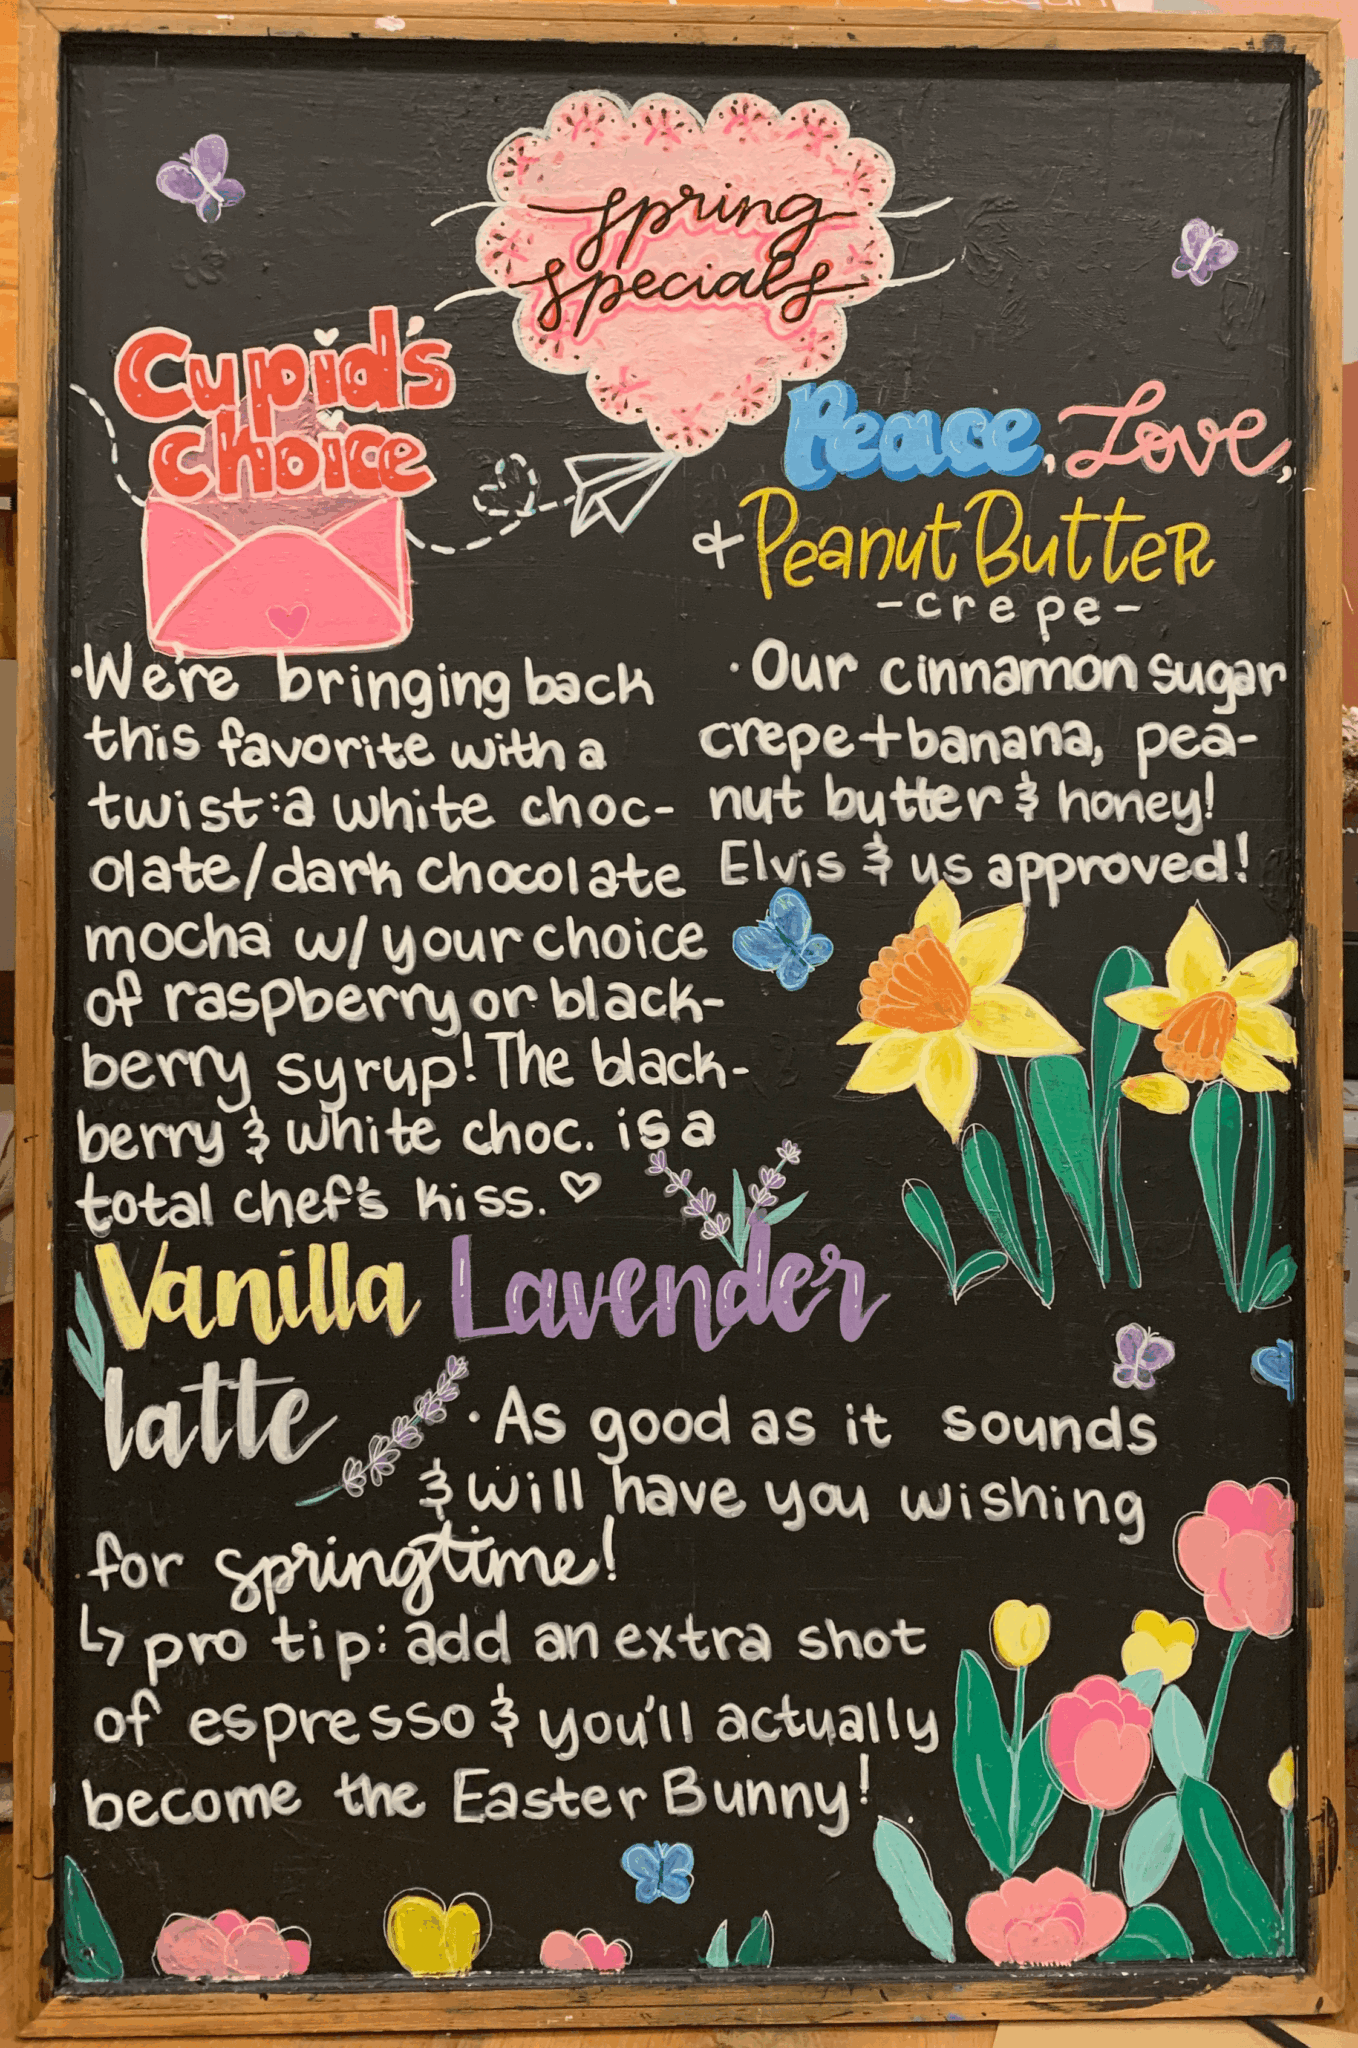 spring
specials
Cupid's
choice
·We're bringing back
this favorite with a
twist: a white choc-
olate/dark chocolate
mocha w/ your choice
of raspberry or black-
berry syrup! The black-
berry & white choc. is a
total chef's kiss. ♡
Peace, Love,
+ Peanut Butter
-crepe-
· Our cinnamon sugar
crepe + banana, pea-
nut butter & honey!
Elvis & us approved!
Vanilla Lavender
latte
· As good as it sounds
& will have you wishing
for springtime!
↳ pro tip: add an extra shot
of espresso & you'll actually
become the Easter Bunny!